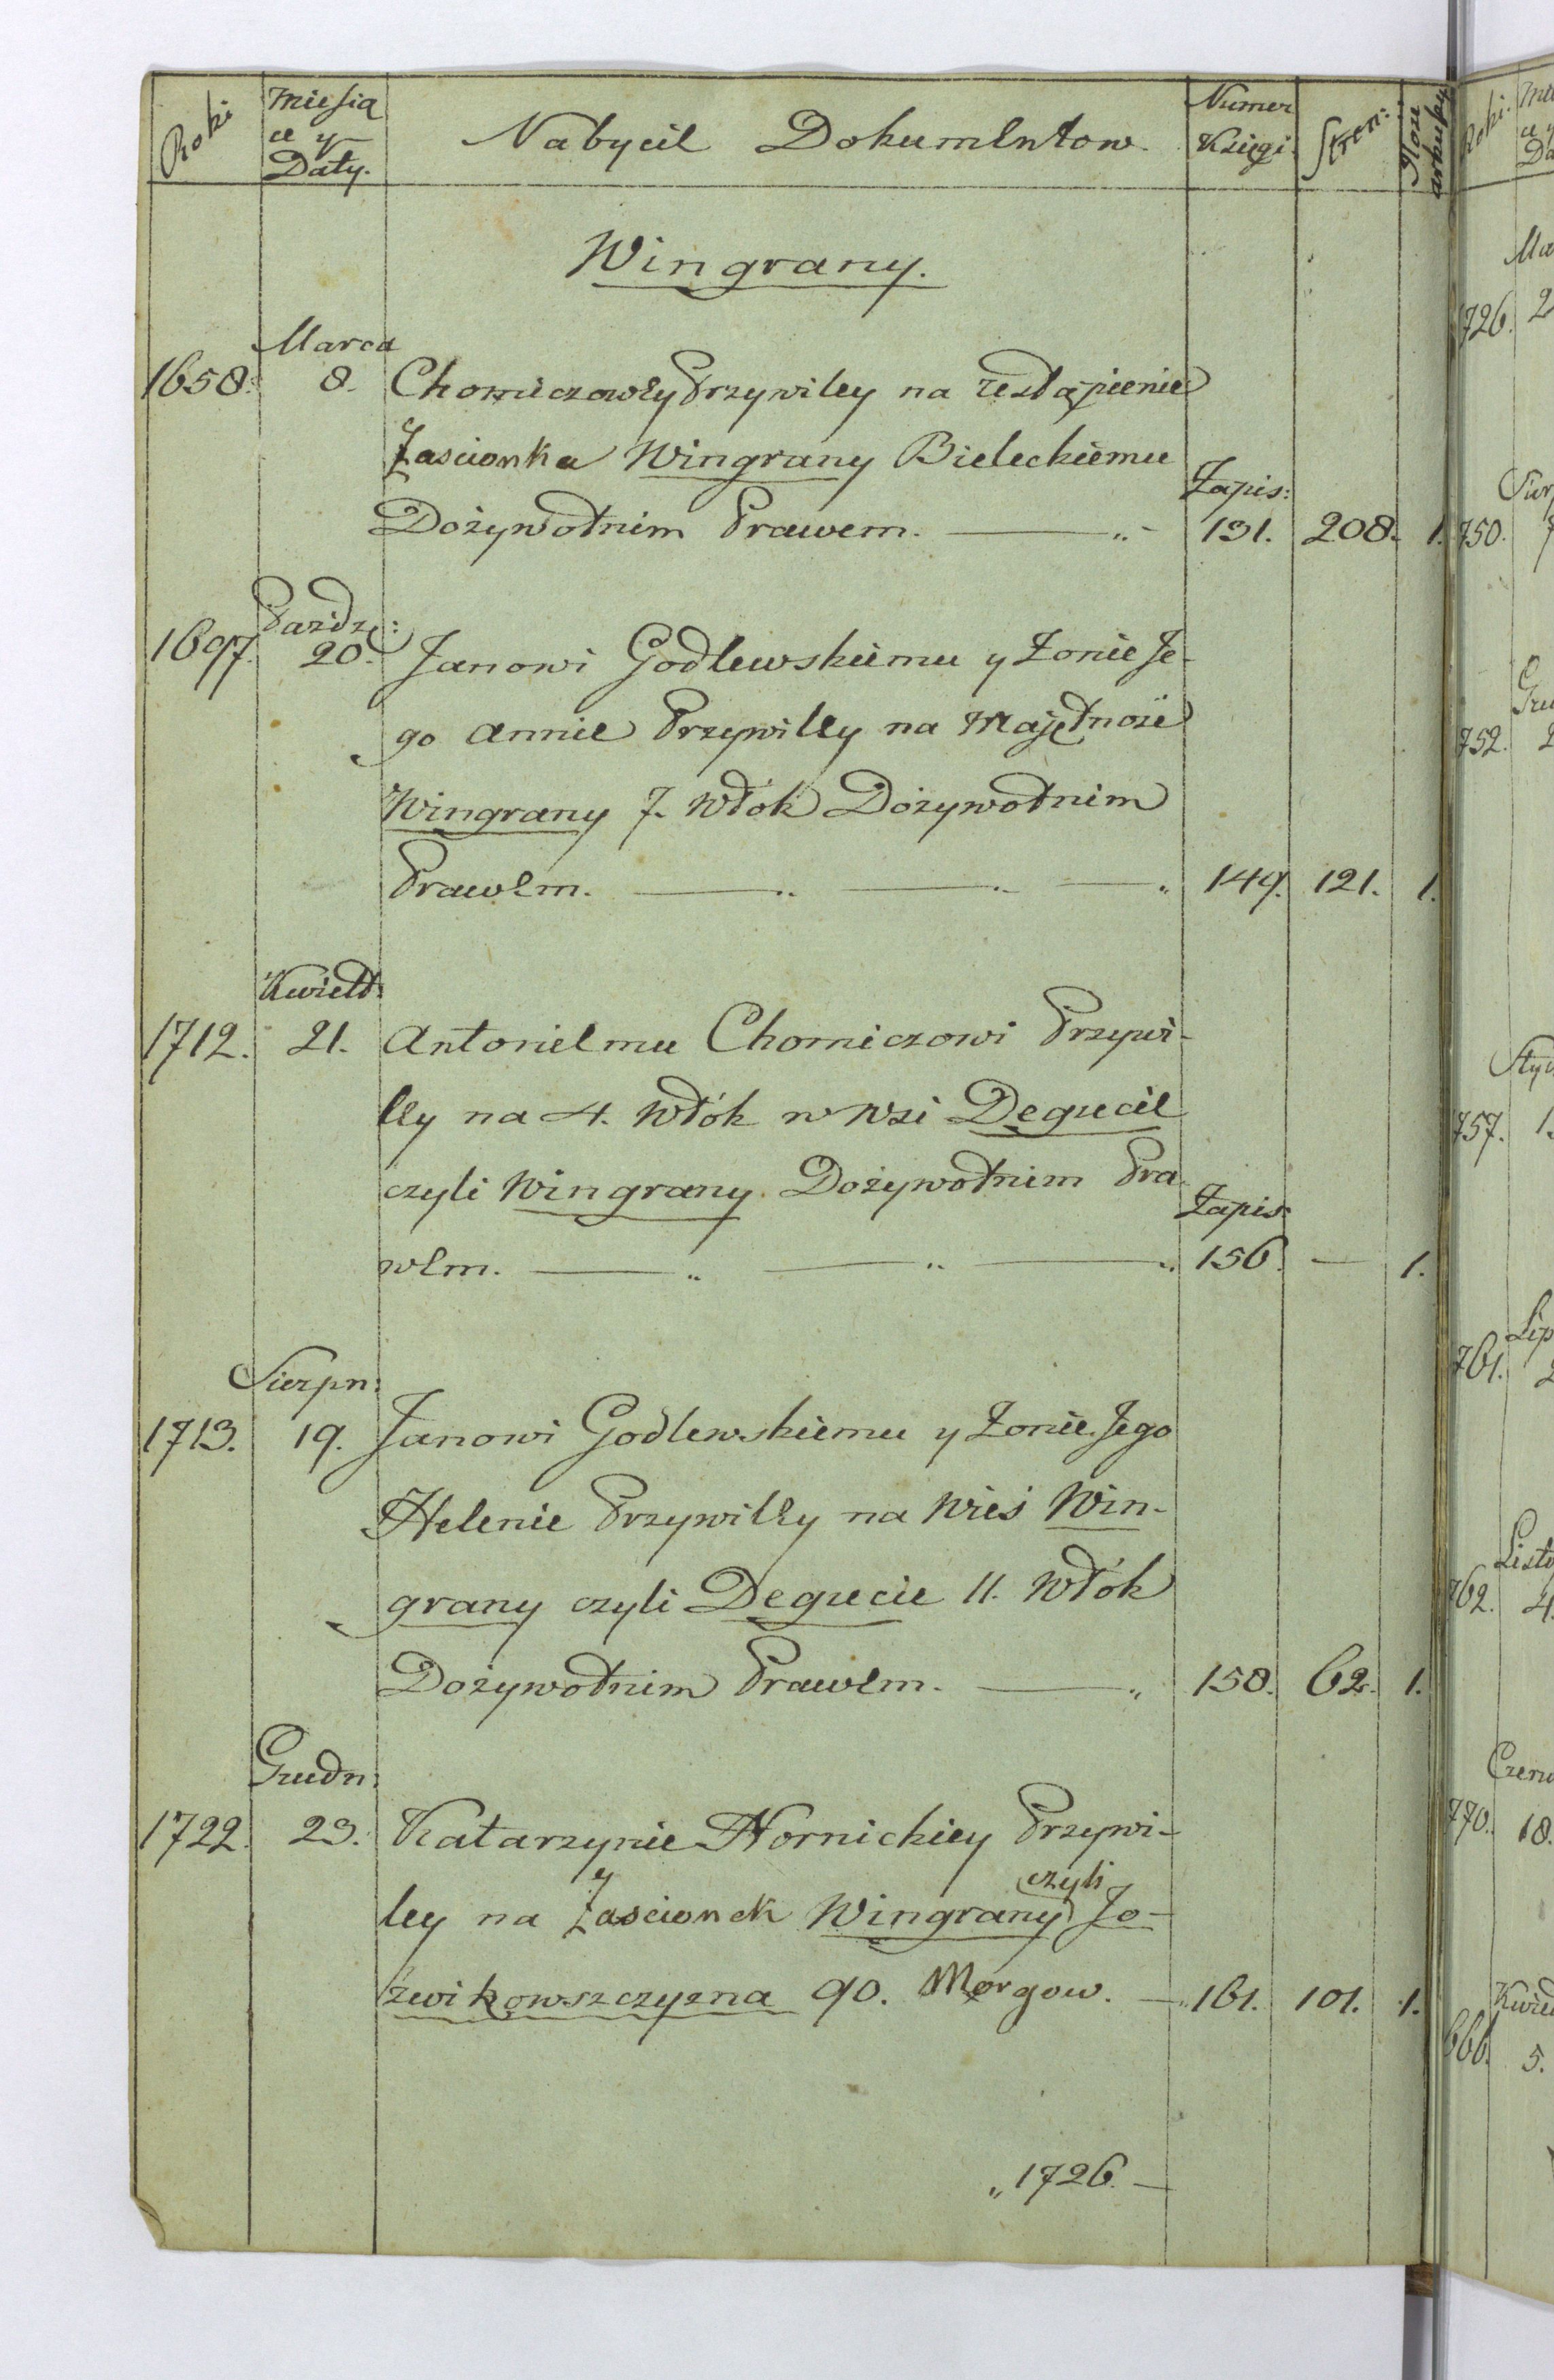 Roki
Miesią
ce y
Daty.
Nabycie Dokumentow.
Numer
Księgi
Stron:
Ilość
arkuszy
Wingrany.
Marca
1658. 8. Chomiczowey Przywiley na zestąpienie
Zascionka Wingrany Bieleckiemu
Zapis:
Dożywotnim Prawem. 131. 208. 1.
Pazdz:
1697. 20. Janowi Godlewskiemu y Żonie Je-
go Annie Przywiley na Majętność
Wingrany 7. Włok Dożywotnim
Prawem. 149. 121. 1.
Kwiet:
1712. 21. Antoniemu Chomiczowi Przywi-
ley na 4. Włók w Wsi Degucie
czyli Wingrany Dożywotnim Pra-
Zapis:
wem. 156. — 1.
Sierpn:
1713. 19. Janowi Godlewskiemu y Żonie Jego
Helenie Przywiley na Wieś Win-
grany czyli Degucie 11. Włók
Dożywotnim Prawem. 158. 62. 1.
Grudn:
1722. 23. Katarzynie Hornickiey Przywi-
czyli
ley na Zascionek Wingrany Jo-
zwikowszczyzna 90. Morgow. 161. 101. 1.
„ 1726. —
Roki.
726. 2
750. 7
752. 2
757. 1
761. 2
762. 4.
770. 18.
666. 5.